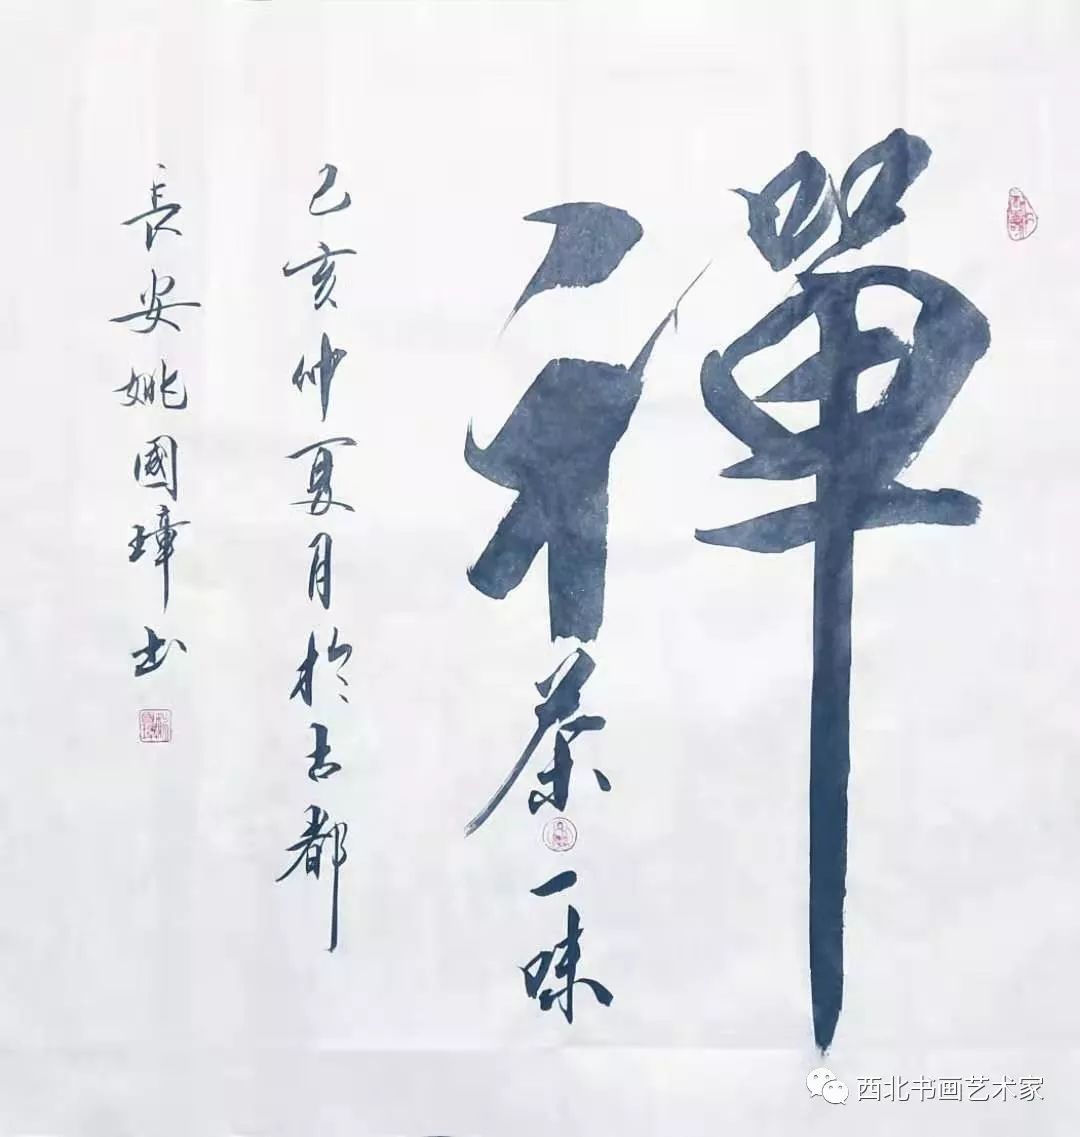 禪
茶一味
己亥仲夏月於古都
長安姚國璋书
西北书画艺术家